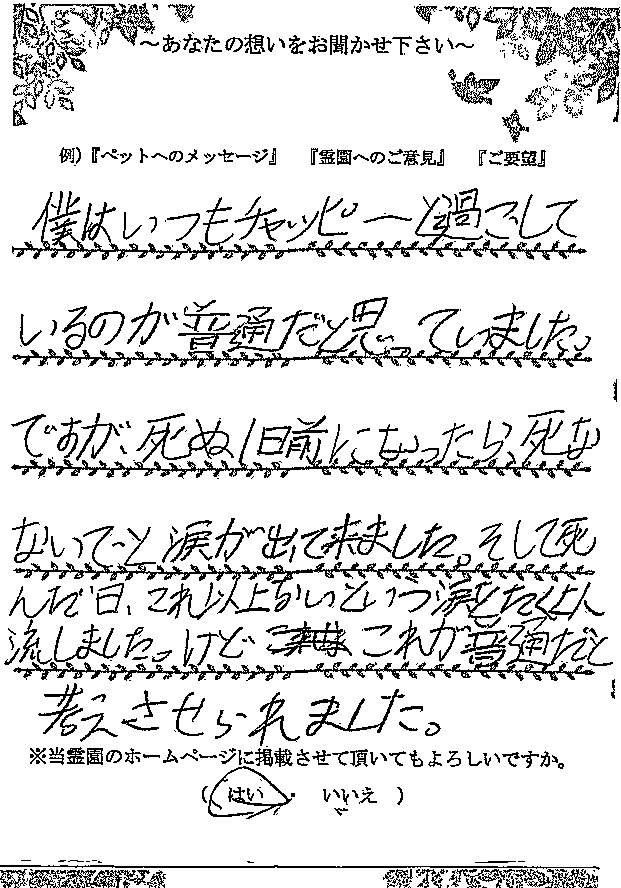 ～あなたの想いをお聞かせ下さい～
例)『ペットへのメッセージ』　『霊園へのご意見』　『ご要望』
僕はいつもチャッピーと過ごして
いるのが普通だと思っていました。
ですが、死ぬ1日前になったら、死な
ないでと涙が出て来ました。そして死
んだ日、これ以上ないという涙をたくさん
流しました。けど これが普通だと
考えさせられました。
※当霊園のホームページに掲載させて頂いてもよろしいですか。
（ はい ・ いいえ ）